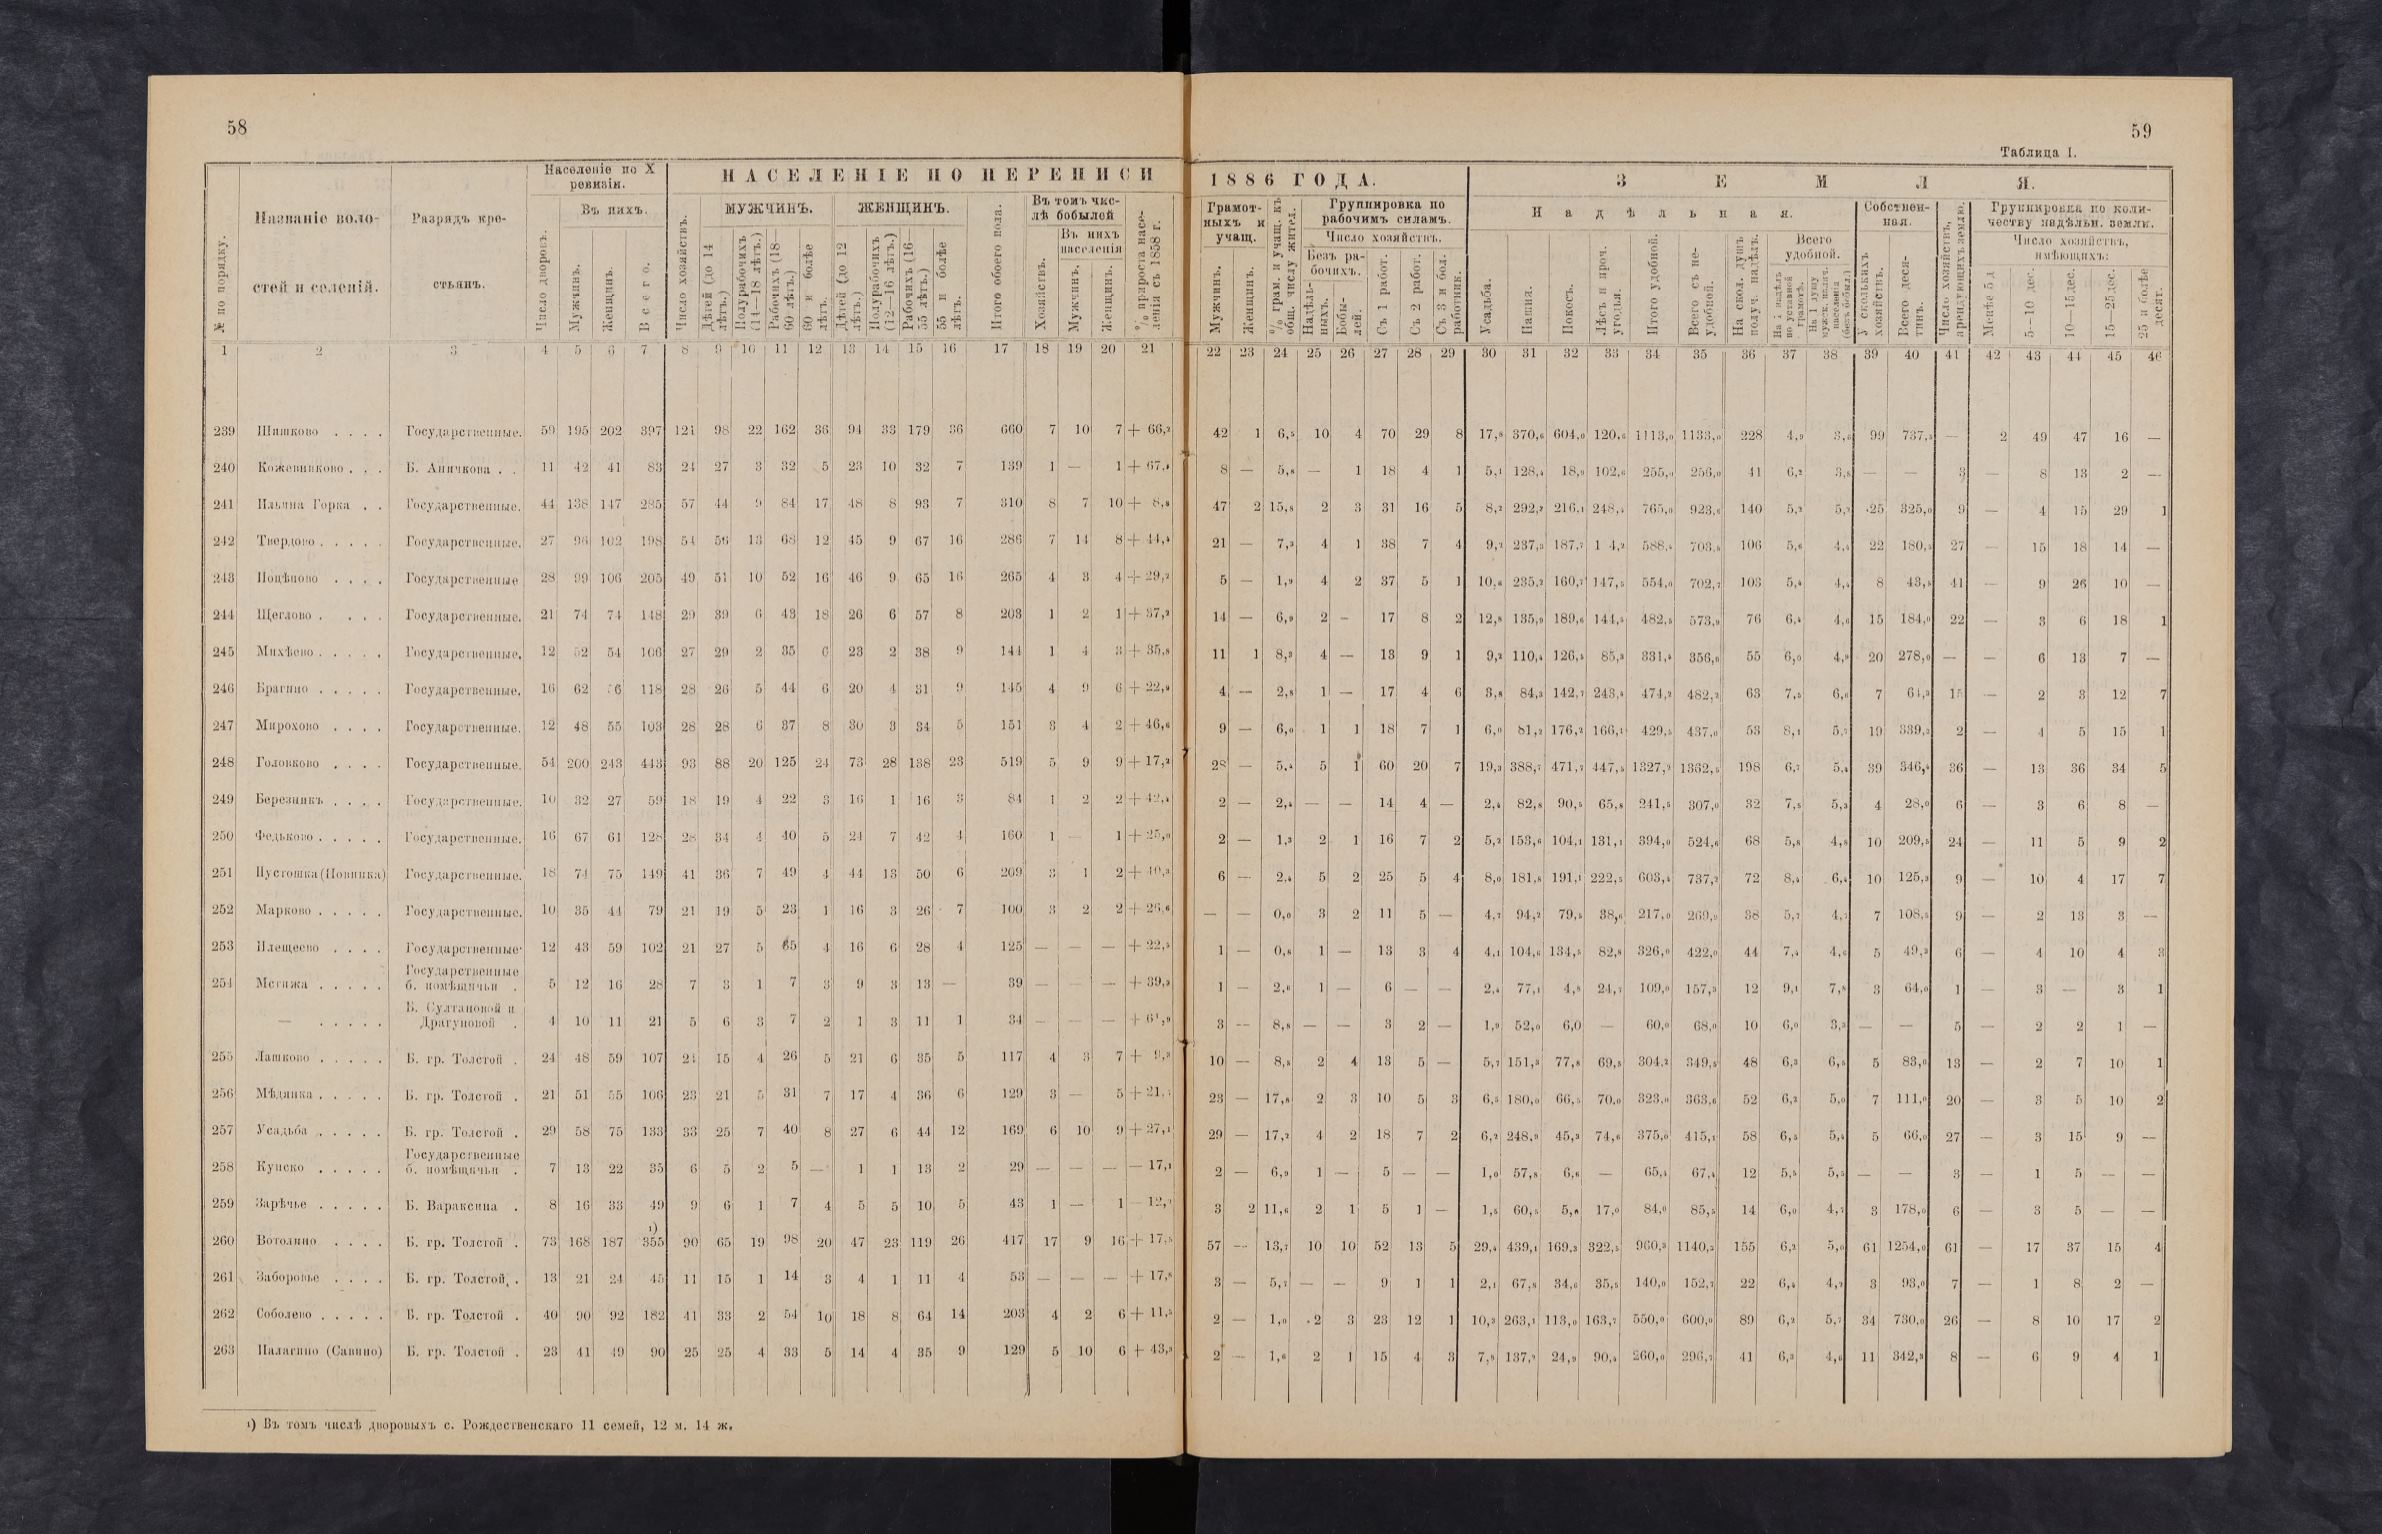 58
59
Таблица I.
№ по порядку.
Названіе воло-
стей и селеній.
Разрядъ кре-
стьянъ.
Населеніе по X
ревизіи.
Число дворовъ.
Въ нихъ.
Мужчинъ.
Женщинъ.
Всего.
НАСЕЛЕНІЕ ПО ПЕРЕПИСИ
1886 ГОДА.
Число хозяйствъ.
МУЖЧИНЪ.
Дѣтей (до 14 лѣтъ.)
Полурабочихъ (14—18 лѣтъ.)
Рабочихъ (18—60 лѣтъ.)
60 и болѣе лѣтъ.
ЖЕНЩИНЪ.
Дѣтей (до 12 лѣтъ.)
Полурабочихъ (12—16 лѣтъ.)
Рабочихъ (16—55 лѣтъ.)
55 и болѣе лѣтъ.
Итого обоего пола.
Въ томъ чис-
лѣ бобылей
Хозяйствъ.
Въ нихъ
населенія
Мужчинъ.
Женщинъ.
% прироста насе-
ленія съ 1858 г.
Грамот-
ныхъ и
учащ.
Мужчинъ.
Женщинъ.
% грам. и учащ. къ
общ. числу жител.
Группировка по
рабочимъ силамъ.
Число хозяйствъ.
Безъ ра-
бочихъ.
Надѣль-
ныхъ.
Бобы-
лей.
Съ 1 работ.
Съ 2 работ.
Съ 3 и бол.
работник.
ЗЕМЛЯ.
Надѣльная.
Усадьба.
Пашня.
Покосъ.
Лѣсъ и проч.
угодья.
Итого удобной.
Всего съ не-
удобной.
На скол. душъ
получ. надѣлъ.
Всего
удобной.
На 1 надѣлъ
по уставной
грамотѣ.
На 1 душу
мужск. налич.
населенія
(безъ бобыл.)
Собствен-
ная.
У сколькихъ
хозяйствъ.
Всего деся-
тинъ.
Число хозяйствъ,
арендующихъ землю.
Группировка по коли-
честву надѣльн. земли.
Число хозяйствъ,
имѣющихъ:
Менѣе 5 д.
5—10 дес.
10—15 дес.
15—25 дес.
25 и болѣе
десят.
1 2 3 4 5 6 7 8 9 10 11 12 13 14 15 16 17 18 19 20 21 22 23 24 25 26 27 28 29 30 31 32 33 34 35 36 37 38 39 40 41 42 43 44 45 46
239 Шишково . . . . Государственные. 59 195 202 397 121 98 22 162 36 94 33 179 36 660 7 10 7 + 66,2 42 1 6,5 10 4 70 29 8 17,8 370,6 604,0 120,6 1113,0 1133,0 228 4,9 3,6 99 737,5 — 2 49 47 16 —
240 Кожевниково . . . Б. Аничкова . . 11 42 41 83 24 27 3 32 5 23 10 32 7 139 1 — 1 + 67,4 8 — 5,8 — 1 18 4 1 5,1 128,4 18,9 102,6 255,0 256,0 41 6,2 3,8 — — 3 — 8 13 2 —
241 Ильина Горка . . Государственные. 44 138 147 285 57 44 9 84 17 48 8 93 7 310 8 7 10 + 8,8 47 2 15,8 2 3 31 16 5 8,2 292,2 216,1 248,5 765,0 923,6 140 5,2 5,7 25 325,0 9 — 4 15 29 1
242 Твердово . . . . . Государственные. 27 96 102 198 54 56 13 68 12 45 9 67 16 286 7 14 8 + 44,4 21 — 7,3 4 1 38 7 4 9,2 237,3 187,7 1 4,2 588,4 703,8 106 5,6 4,4 22 180,5 27 — 15 18 14 —
243 Поцѣпово . . . . Государственные 28 99 106 205 49 51 10 52 16 46 9 65 16 265 4 3 4 + 29,2 5 — 1,9 4 2 37 5 1 10,6 235,2 160,7 147,5 554,0 702,7 103 5,4 4,4 8 43,5 41 — 9 26 10 —
244 Щеглово . . . . Государственные. 21 74 74 148 29 39 6 43 18 26 6 57 8 203 1 2 1 + 37,2 14 — 6,9 2 - 17 8 2 12,8 135,9 189,6 144,5 482,8 573,9 76 6,4 4,6 15 184,0 22 — 3 6 18 1
245 Михѣево . . . . . Государственные. 12 52 54 106 27 29 2 35 6 23 2 38 9 144 1 4 3 + 35,8 11 1 8,3 4 — 13 9 1 9,2 110,4 126,5 85,3 331,4 356,0 55 6,0 4,9 20 278,0 — — 6 13 7 —
246 Брагино . . . . . Государственные. 16 62 56 118 28 26 5 44 6 20 4 31 9 145 4 9 6 + 22,9 4 — 2,8 1 — 17 4 6 3,8 84,3 142,7 243,4 474,2 482,2 63 7,5 6,6 7 64,3 15 — 2 3 12 7
247 Мирохово . . . . Государственные. 12 48 55 103 28 28 6 37 8 30 3 34 5 151 3 4 2 + 46,6 9 — 6,0 1 1 18 7 1 6,0 81,2 176,2 166,1 429,5 437,0 53 8,1 5,7 19 339,5 2 — 4 5 15 1
248 Головково . . . . Государственные. 54 200 243 443 93 88 20 125 24 73 28 138 23 519 5 9 9 + 17,2 28 — 5,4 5 1 60 20 7 19,3 388,7 471,7 447,5 1327,2 1362,5 198 6,7 5,4 39 346,4 36 — 13 36 34 5
249 Березникъ . . . . Государственные. 10 32 27 59 18 19 4 22 3 16 1 16 3 84 1 2 2 + 42,4 2 — 2,4 — — 14 4 — 2,4 82,8 90,5 65,8 241,5 307,0 32 7,5 5,3 4 28,0 6 — 3 6 8 —
250 Федьково . . . . . Государственные. 16 67 61 128 28 34 4 40 5 24 7 42 4 160 1 — 1 + 25,0 2 — 1,3 2 1 16 7 2 5,2 153,6 104,1 131,1 394,0 524,6 68 5,8 4,8 10 209,5 24 — 11 5 9 2
251 Пустошка (Новинка) Государственные. 18 74 75 149 41 36 7 49 4 44 13 50 6 209 3 1 2 + 40,3 6 — 2,4 5 2 25 5 4 8,0 181,8 191,1 222,5 603,4 737,2 72 8,4 6,4 10 125,3 9 — 10 4 17 7
252 Марково . . . . . Государственные. 10 35 44 79 21 19 5 23 1 16 3 26 7 100 3 2 2 + 26,6 — — 0,0 3 2 11 5 — 4,7 94,2 79,5 38,6 217,0 269,9 38 5,7 4,7 7 108,5 9 — 2 13 3 —
253 Плещеево . . . . Государственные 12 43 59 102 21 27 5 65 4 16 6 28 4 125 — — — + 22,5 1 — 0,8 1 — 13 3 4 4,1 104,6 134,5 82,8 326,0 422,0 44 7,4 4,6 5 49,3 6 — 4 10 4 3
254 Мстижа . . . . . Государственные
б. помѣщичьи . 5 12 16 28 7 3 1 7 3 9 3 13 — 39 — — — + 39,3 1 — 2,6 1 — 6 — — 2,4 77,1 4,8 24,7 109,0 157,3 12 9,1 7,8 3 64,0 1 — 3 — 3 1
— . . . . . Б. Султановой и
Драгуновой . 4 10 11 21 5 6 3 7 2 1 3 11 1 34 — — — + 61,9 3 — 8,8 — — 3 2 — 1,9 52,0 6,0 — 60,0 68,0 10 6,0 3,3 — — 5 — 2 2 1 —
255 Лашково . . . . . Б. гр. Толстой . 24 48 59 107 24 15 4 26 5 21 6 35 5 117 4 3 7 + 9,3 10 — 8,5 2 4 13 5 — 5,7 151,3 77,8 69,5 304,2 349,5 48 6,3 6,5 5 83,0 13 — 2 7 10 1
256 Мѣдянка . . . . . Б. гр. Толстой . 21 51 55 106 23 21 5 31 7 17 4 36 6 129 3 — 5 + 21,7 23 — 17,8 2 3 10 5 3 6,5 180,0 66,5 70,0 323,0 363,6 52 6,2 5,0 7 111,0 20 — 3 5 10 2
257 Усадьба . . . . . Б. гр. Толстой . 29 58 75 133 33 25 7 40 8 27 6 44 12 169 6 10 9 + 27,1 29 — 17,2 4 2 18 7 2 6,2 248,9 45,3 74,6 375,0 415,1 58 6,5 5,4 5 66,0 27 — 3 15 9 —
258 Кунско . . . . . Государственные
б. помѣщичьи . 7 13 22 35 6 5 2 5 — 1 1 13 2 29 — — — — 17,1 2 — 6,9 1 — 5 — — 1,0 57,8 6,6 — 65,4 67,4 12 5,5 5,5 — — 3 — 1 5 — —
259 Зарѣчье . . . . . Б. Вараксина . 8 16 33 49 9 6 1 7 4 5 5 10 5 43 1 — 1 — 12,2 3 2 11,6 2 1 5 1 — 1,5 60,5 5,0 17,0 84,0 85,5 14 6,0 4,7 3 178,0 6 — 3 5 — —
260 Вотолино . . . . Б. гр. Толстой . 73 168 187 ¹) 355 90 65 19 98 20 47 23 119 26 417 17 9 16 + 17,5 57 — 13,7 10 10 52 13 5 29,4 439,1 169,3 322,5 960,3 1140,3 155 6,2 5,0 61 1254,0 61 — 17 37 15 4
261 Заборовье . . . . Б. гр. Толстой . 13 21 24 45 11 15 1 14 3 4 1 11 4 53 — — — + 17,8 3 — 5,7 — — 9 1 1 2,1 67,8 34,6 35,5 140,0 152,7 22 6,4 4,2 3 93,0 7 — 1 8 2 —
262 Соболево . . . . . Б. гр. Толстой . 40 90 92 182 41 33 2 54 10 18 8 64 14 203 4 2 6 + 11,5 2 — 1,0 2 3 23 12 1 10,3 263,1 113,0 163,7 550,0 600,0 89 6,2 5,7 34 730,0 26 — 8 10 17 2
263 Палагино (Савино) Б. гр. Толстой . 23 41 49 90 25 25 4 33 5 14 4 35 9 129 5 10 6 + 43,3 2 — 1,6 2 1 15 4 3 7,8 137,7 24,9 90,4 260,0 296,7 41 6,3 4,6 11 342,3 8 — 6 9 4 1
¹) Въ томъ числѣ дворовыхъ с. Рождественскаго 11 семей, 12 м. 14 ж.